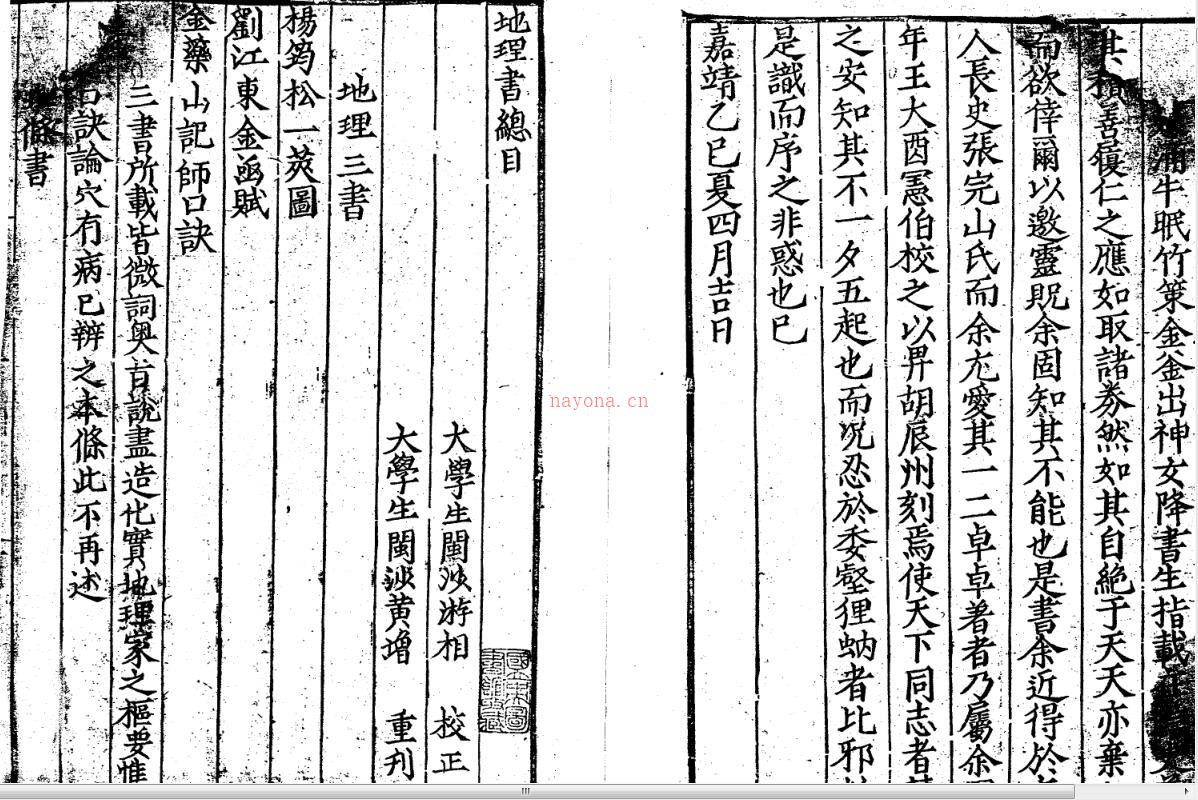 涌牛眠竹策金釜出神女降書生指載
其指善履仁之應如取諸券然如其自絶于天天亦棄
而欲倖爾以邀靈貺余固知其不能也是書余近得於
人長史張完山氏而余尤愛其一二卓卓著者乃屬余
年王大酉憲伯校之以畀胡辰州刻焉使天下同志者
之安知其不一夕五起也而况忍於委壑狸蚋者比邪
是識而序之非惑也已
嘉靖乙巳夏四月吉日
地理書總目
大學生閩沙游相 校正
大學生閩沙黄增 重刋
地理三書
楊筠松一莢圖
劉江東金函賦
金藥山記師口訣
三書所載皆微詞奥旨說盡造化實地理家之樞要惟
口訣論穴有病已辨之本條此不再述
條書
nayona.cn